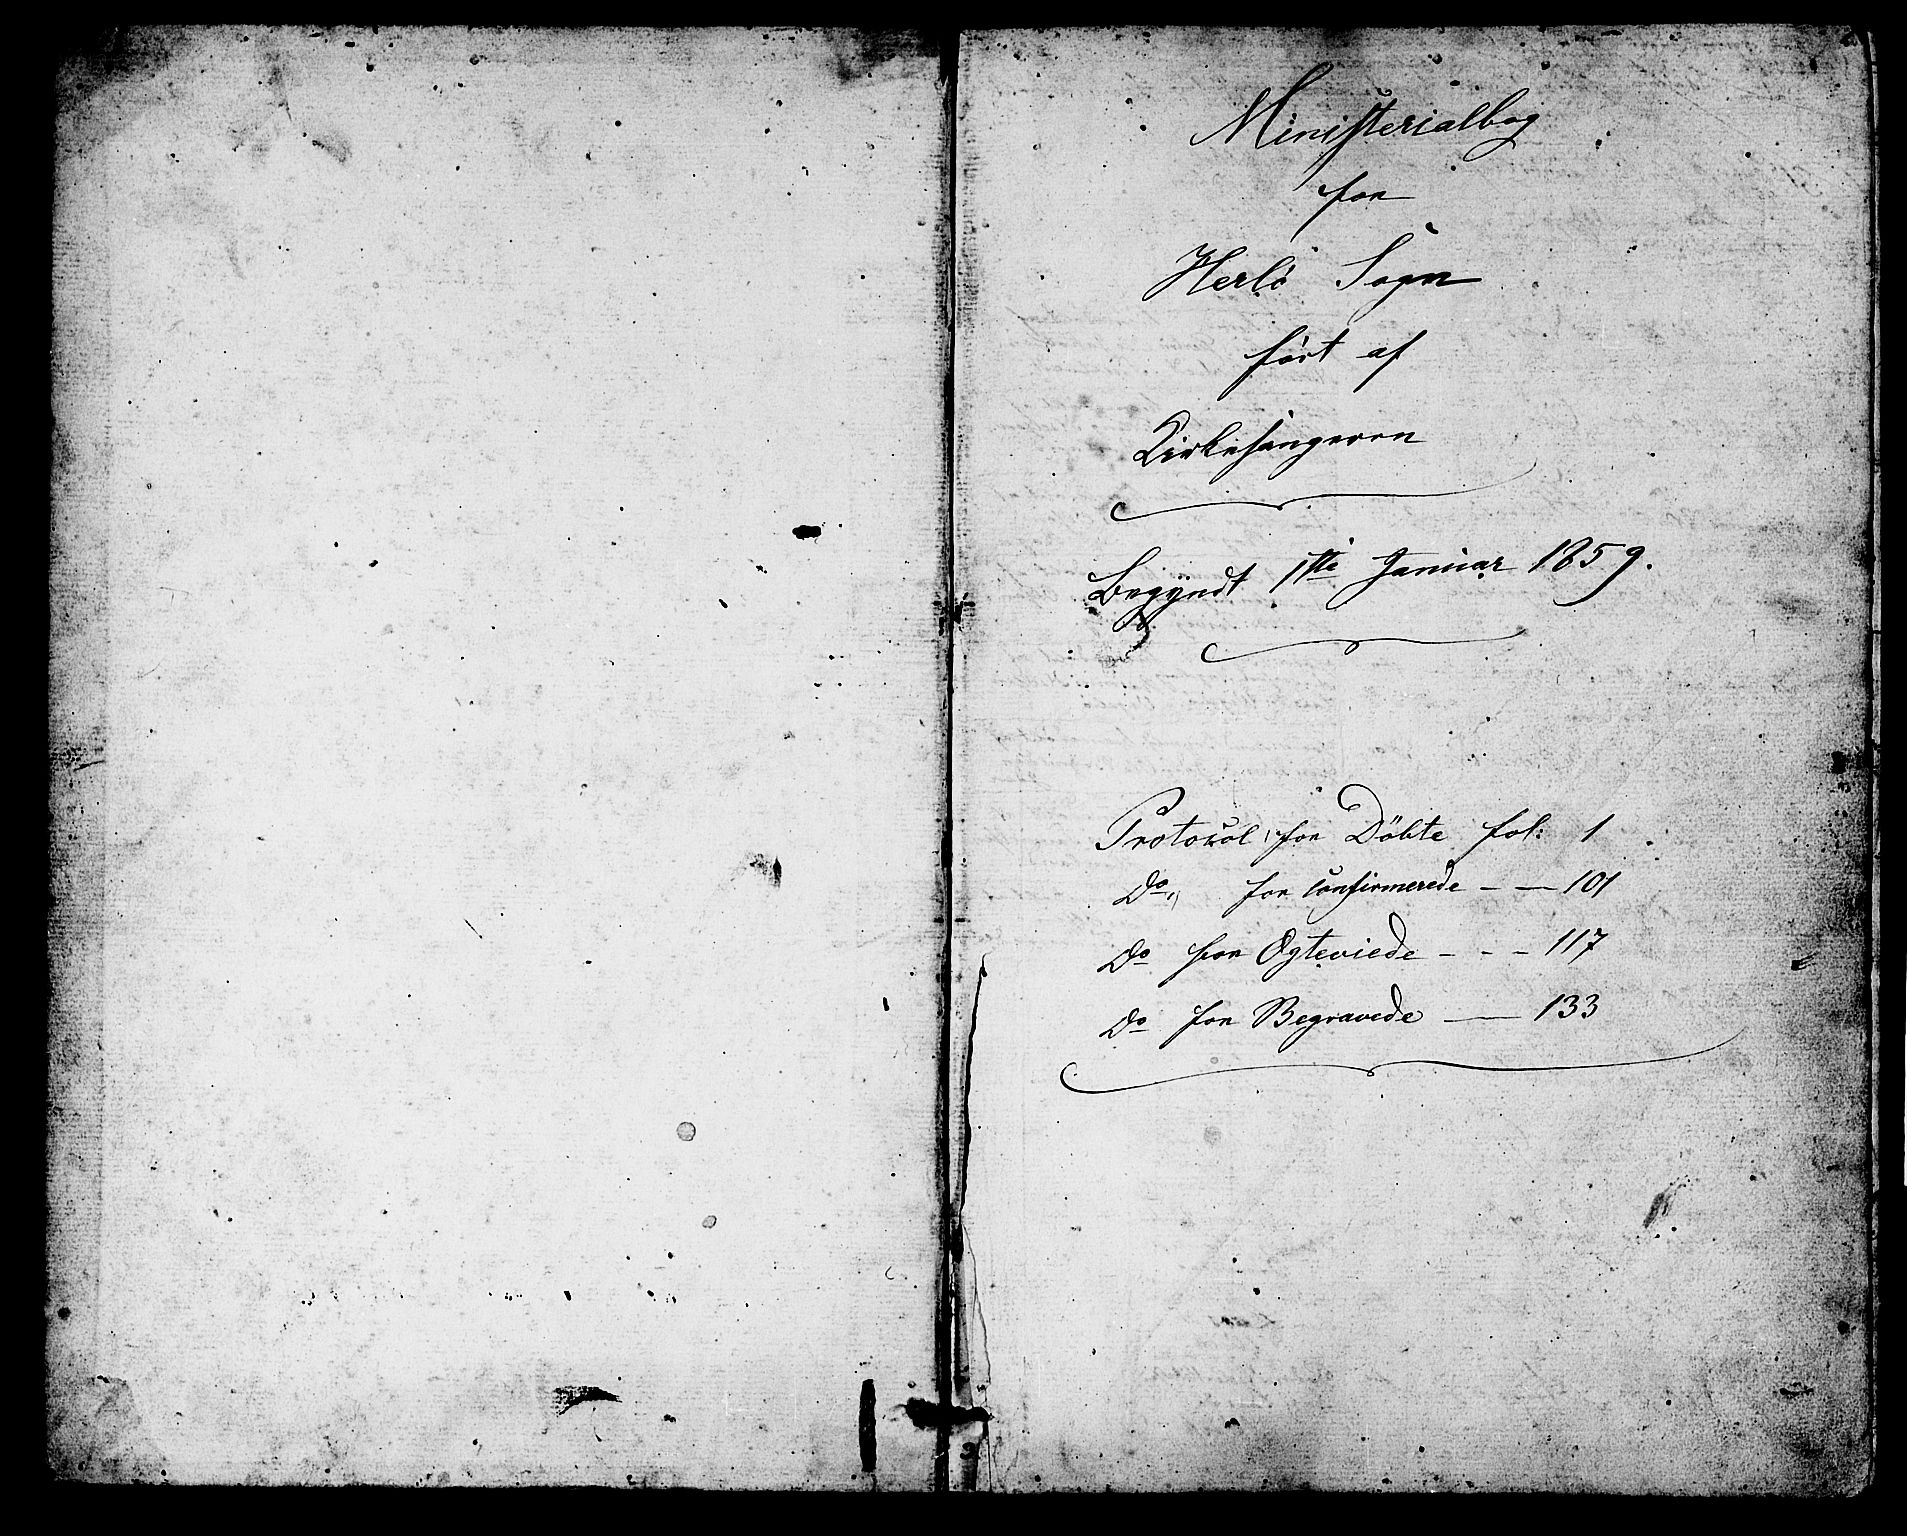 Ministerialbog
for
Herlö Sogn
fört af
Kirkesangeren
Begyndt 1ste Januar 1859.
Protokol for Döbte fol: 1
Do, for Confirmerede - — 101
Do for Egteviede - - - 117
Do for Begravede — 133